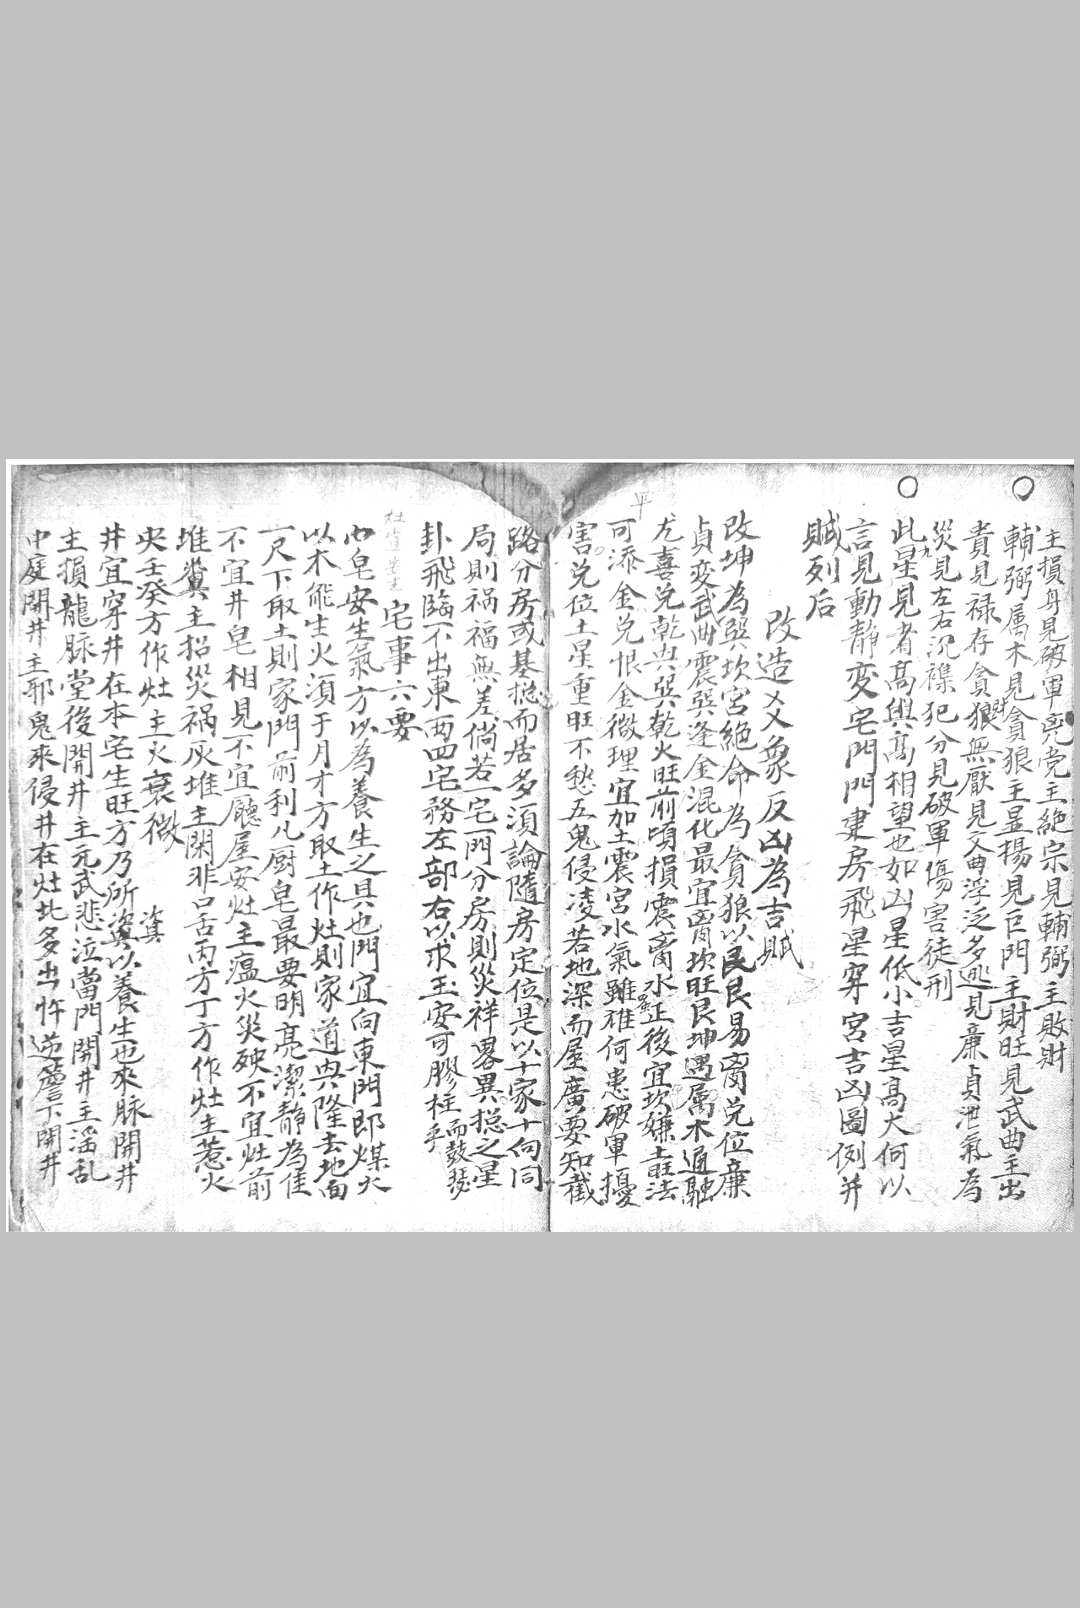 主損身見破軍亮党主絶宗見輔弼主敗財
輔弼属木見貪狼主显揚見巨門主財旺見武曲主出
貴見禄存貪狼無厭見文曲浮泛多逃見廉貞泄氣為
災見左右沉襍犯分見破軍傷害徒刑
此星見者髙與髙相望也如凶星低小吉星髙大何以
言見動静变宅門門建房飛星穿宮吉凶圖例并
賦列后
改造爻象反凶為吉賦
改坤為巽坎宮絶命為貪狼以艮艮易离兑位廉
貞变武曲震巽逢金混化最宜离坎旺艮坤遇属木通融
尤喜兑乾與巽乾火旺前頃損震离水正後宜坎嫌土旺法
可添金兑恨金微理宜加土震宮水氣雖雅何患破軍擾
害兑位土星重旺不愁五鬼侵凌若地深而屋廣要知截
路分房或基摠而居多須論随房定位是以十家十向同
局則祸福無差倘若一宅一門分房則災祥畧異摠之星
卦飛臨不出東西四宅務左部右以求玉安可膠柱而鼓瑟乎
宅事六要
皂安生氣方以為養生之具也門宜向東門即煤火
以木能生火須于月才方取土作灶則家道與隆去地面
一尺下取土則家門前利凡厨皂最要明亮潔静為佳
不宜井皂相見不宜廳屋安灶主瘟火災殃不宜灶前
堆糞主招災祸灰堆主閑非口舌丙方丁方作灶主惹火
央壬癸方作灶主火衰微
井宜穿井在本宅生旺方乃所以養生也來脉開井
主損龍脉堂後開井主元武悲泣當門開井主滛乱
中庭開井主邪鬼來侵井在灶北多出忤逆簷下開井